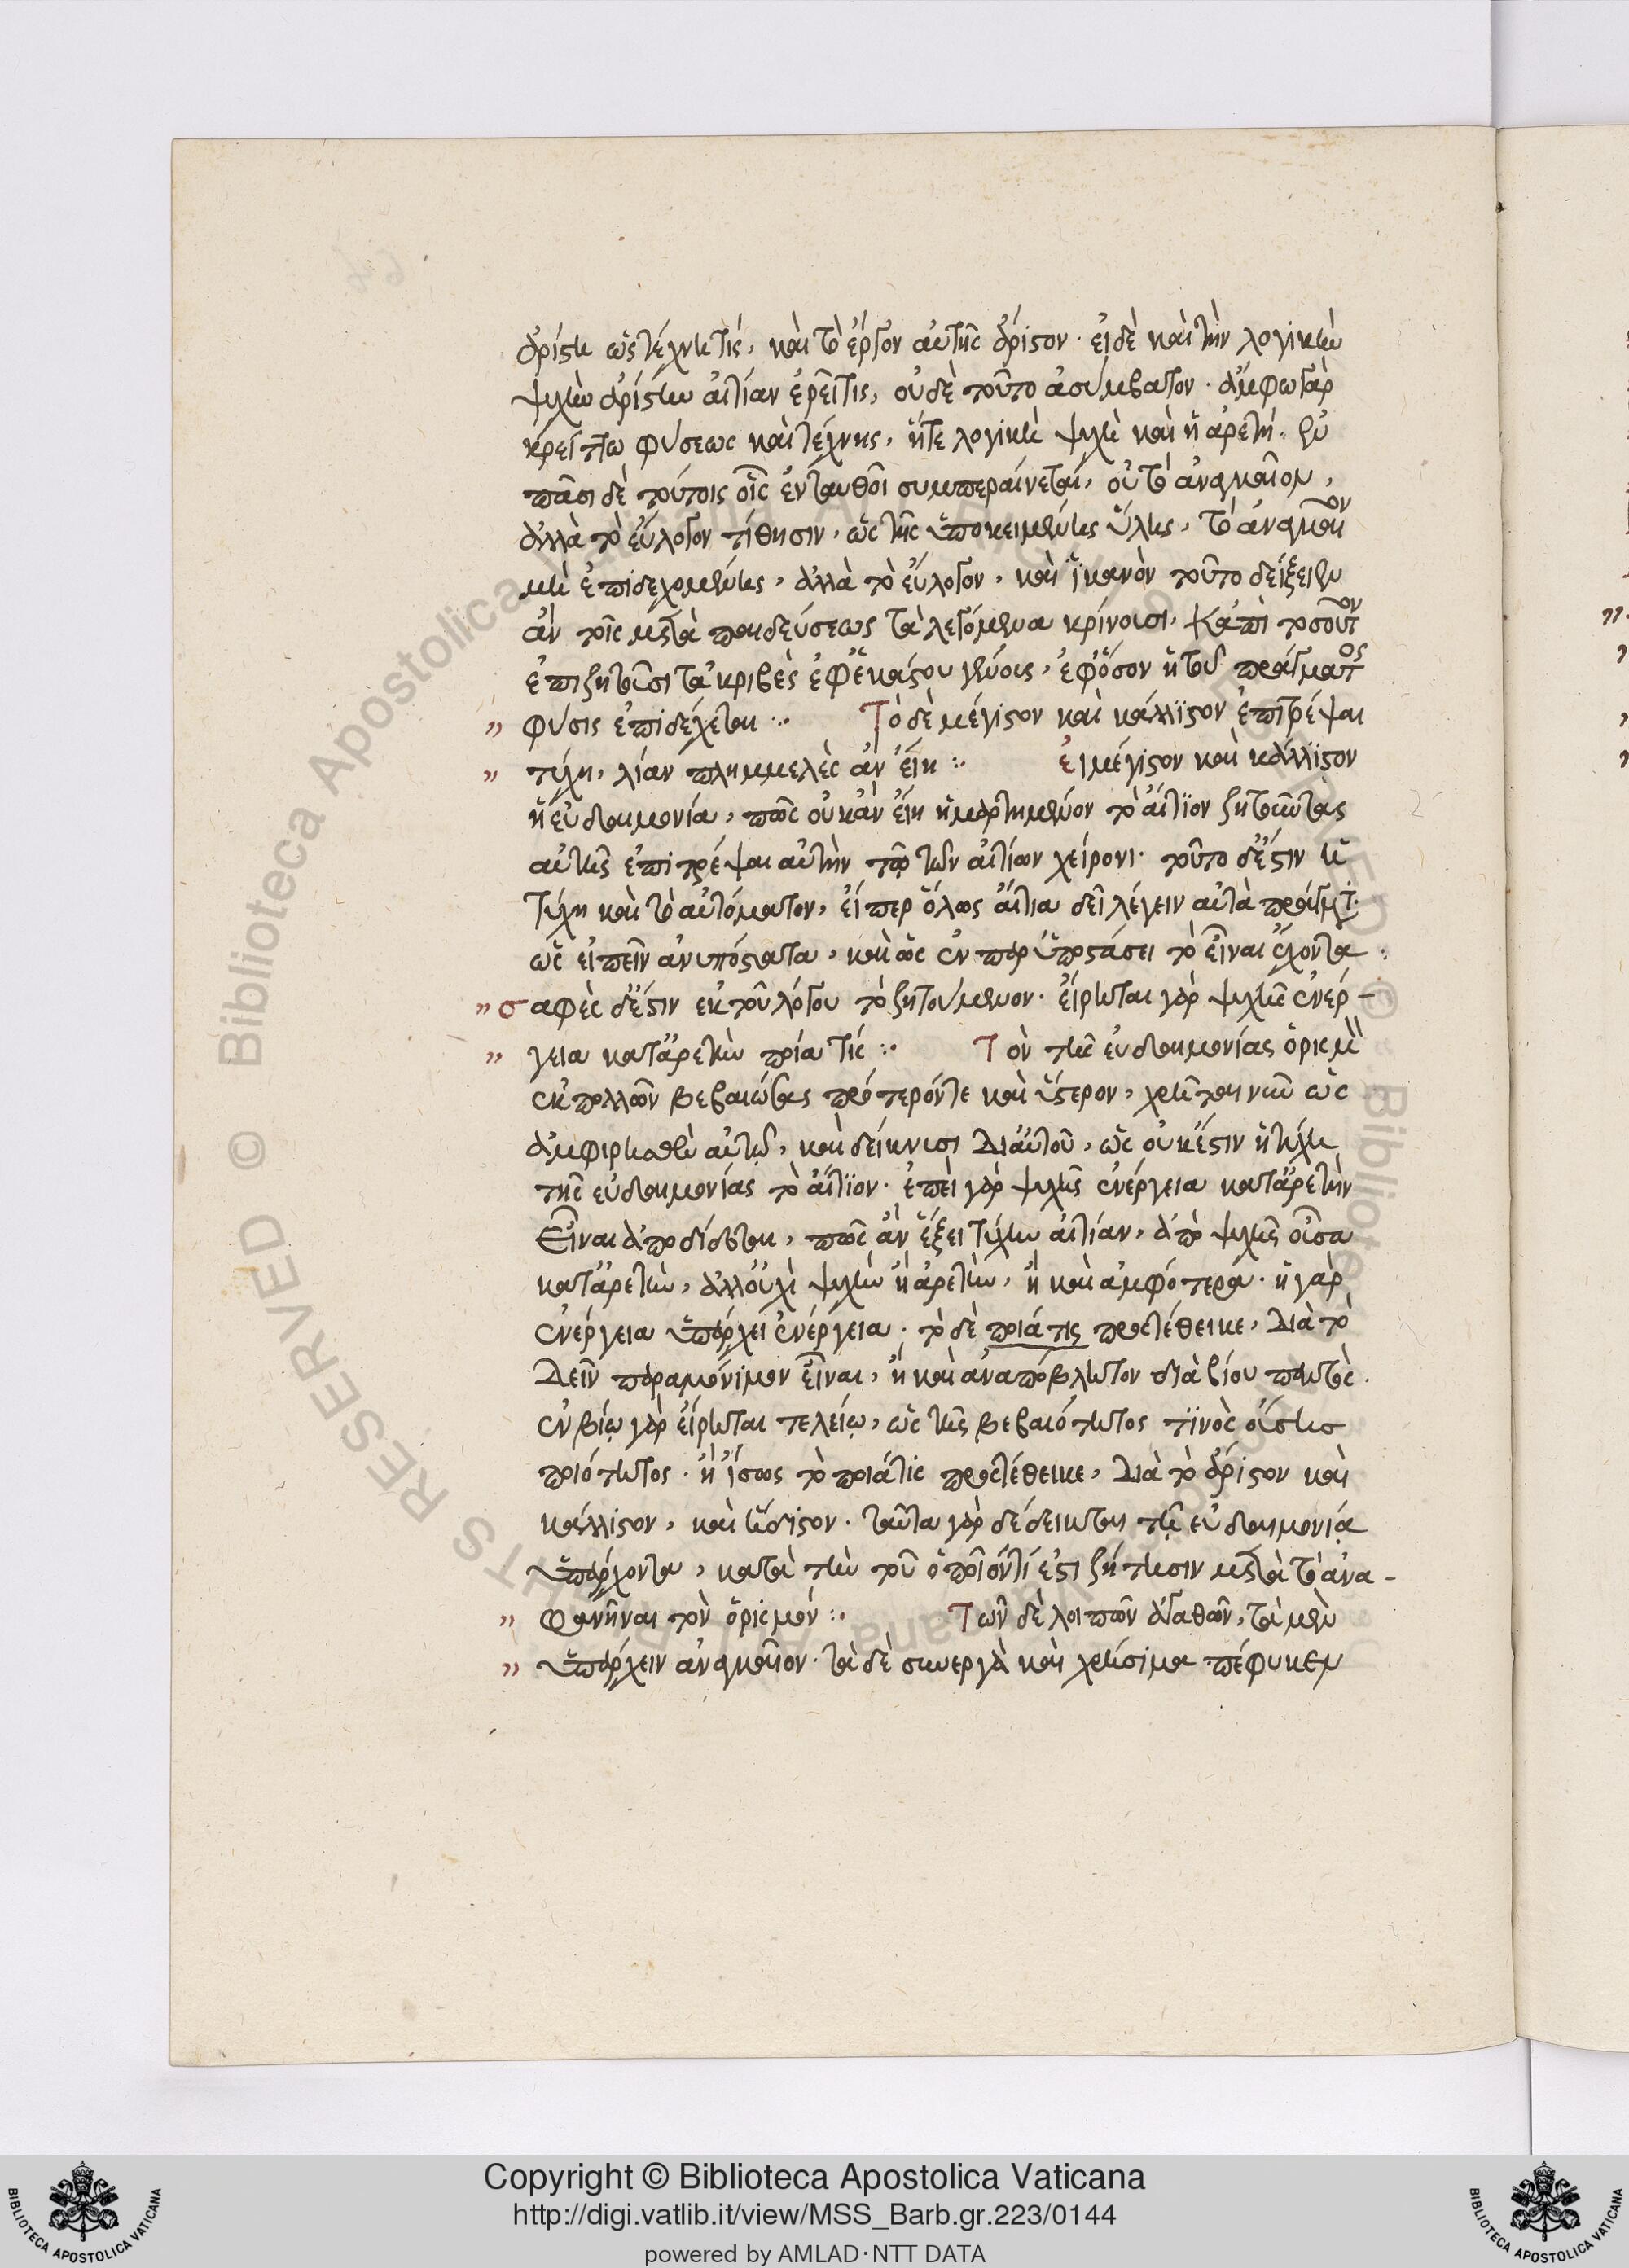 ἀρίστη ὥς τέχνη τίς, καὶ τὸ ἔργον αὐτῆς ἄριστον· εἰ δὲ καὶ τὴν λογικὴν
ψυχὴν ἀρίστην αἰτίαν ἐρεῖ τις, οὐδὲ τοῦτο ἀσύμβατον· ἄμφω γὰρ
κρείττω φύσεως καὶ τέχνης, ἥτε λογικὴ ψυχὴ καὶ ἡ ἀρετή. ἐν
πᾶσι δὲ τούτοις οἷς ἐνταυθοῖ συμπεραίνεται, οὐ τὸ ἀναγκαῖον,
ἀλλὰ τὸ εὔλογον τίθησιν, ὡς τῆς ὑποκειμένης ὕλης, τὸ ἀναγκαῖον
μὴ ἐπιδεχομένης, ἀλλὰ τὸ εὔλογον, καὶ ἱκανὸν τοῦτο δείξειεν
ἂν τοῖς μετὰ παιδεύσεως τὰ λεγόμενα κρίνουσι, κἀπὶ τοσοῦτον
ἐπιζητοῦσι τἀκριβὲς ἐφ' ἑκάστου γένους, ἐφ' ὅσον ἡ τοῦ πράγματος
" φύσις ἐπιδέχεται :· Τὸ δὲ μέγιστον καὶ κάλλιστον ἐπιτρέψαι
" τύχῃ, λίαν πλημμελὲς ἂν εἴη :· εἰ μέγιστον καὶ κάλλιστον
ἡ εὐδαιμονία, πῶς οὐκ ἂν εἴη ἡμαρτημένον τὸ αἴτιον ζητοῦντας
αὐτῆς ἐπιτρέψαι αὐτὴν τῷ τῶν αἰτίων χείρονι· τοῦτο δ' ἔστιν ἡ
τύχη καὶ τὸ αὐτόματον, εἴπερ ὅλως αἴτια δεῖ λέγειν αὐτὰ πράγματ
ὡς εἰπεῖν ἀνυπόστατα, καὶ ὡς ἐν παρυποστάσει τὸ εἶναι ἔχοντα.
" σαφὲς δ' ἔστιν ἐκ τοῦ λόγου τὸ ζητούμενον· εἴρηται γὰρ ψυχῆς ἐνέρ-
" γεια κατ' ἀρετὴν ποία τίς :· Τὸν τῆς εὐδαιμονίας ὁρισμὸν
ἐκ πολλῶν βεβαιώσας πρότερόν τε καὶ ὕστερον, χρῆται νῦν ὡς
δείκνυσι δι' αὐτοῦ, ὡς οὐκ ἔστιν ἡ τύχη
τῆς εὐδαιμονίας τὸ αἴτιον· ἐπεὶ γὰρ ψυχῆς ἐνέργεια κατ' ἀρετὴν
εἶναι ἀποδίδοται, πῶς ἂν ἕξει τύχην αἰτίαν, ἀπὸ ψυχῆς οὖσα
κατ' ἀρετὴν, ἀλλ' οὐχὶ ψυχὴν ἢ ἀρετὴν, ἢ καὶ ἀμφότερα· ἡ γὰρ
ἐνέργεια ὑπάρχει ἐνέργεια· τὸ δὲ ποιά τις προστέθεικε, διὰ τὸ
δεῖν παραμόνιμον εἶναι, ἢ καὶ ἀναπόβλητον διὰ βίου παντός.
ἐν βίῳ γὰρ εἴρηται τελείῳ, ὡς τῆς βεβαιότητος τινὸς οὔσης
ποιότητος· ἢ ἴσως τὸ ποιά τις προστέθεικε, διὰ τὸ ἄριστον καὶ
κάλλιστον, καὶ ἥδιστον· ταῦτα γὰρ δέδεικται τῇ εὐδαιμονίᾳ
ὑπάρχοντα, κατὰ τὴν τοῦ ὁποῖόν τί ἐστι ζήτησιν μετὰ τὸ ἀνα-
" φανῆναι τὸν ὁρισμόν :· Τῶν δὲ λοιπῶν ἀγαθῶν, τὰ μὲν
" ὑπάρχειν ἀναγκαῖον· τὰ δὲ συνεργὰ καὶ χρήσιμα πέφυκεν
Copyright © Biblioteca Apostolica Vaticana
http://digi.vatlib.it/view/MSS_Barb.gr.223/0144
powered by AMLAD·NTT DATA
BIBLIOTECA APOSTOLICA VATICANA
BIBLIOTECA APOSTOLICA VATICANA